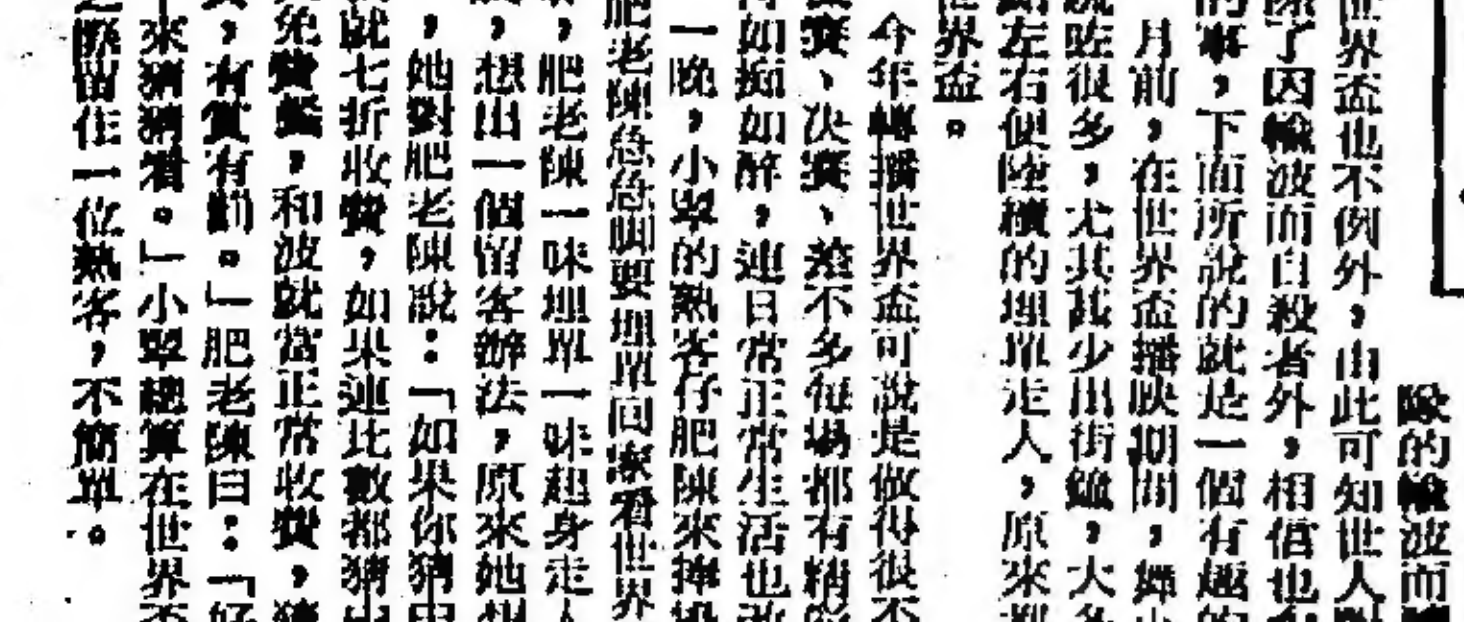 隊的輸波而
世界盃也不例外，由此可知世人
除了因輸波而自殺者外，相信也
的事，下面所說的就是一個有趣的
月前，在世界盃播映期間，舞
咗很多，尤其甚少出街鐘，大多
左右便陸續的埋單走人，原來都
世界盃。
今年轉播世界盃可說是做得很不
賽、決賽、差不多每場都有精彩
如痴如醉，連日常正常生活也改
一晚，小翠的熟客仔肥陳來捧場
肥老陳急急脚要埋單回家看世界
，肥老陳一味埋單一味起身走人
，想出一個留客辦法，原來她想
，她對肥老陳說：「如果你猜中
就七折收費，如果連比數都猜中
免費餐，和波就當正常收費，猜
，有賞有罰。」肥老陳曰：「好
來猜猜看。」小翠總算在世界盃
之際留住一位熟客，不簡單。